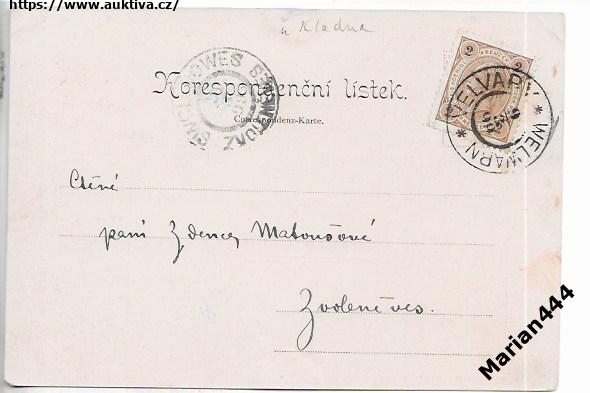 https://www.auktiva.cz/
u Kladna
Korespondenční lístek.
Correspondenz-Karte.
2 KREUZER 2
VELVARY * WELWARN *
Ctěné
paní Zdence Matoušové
Zvoleněves.
Marian444